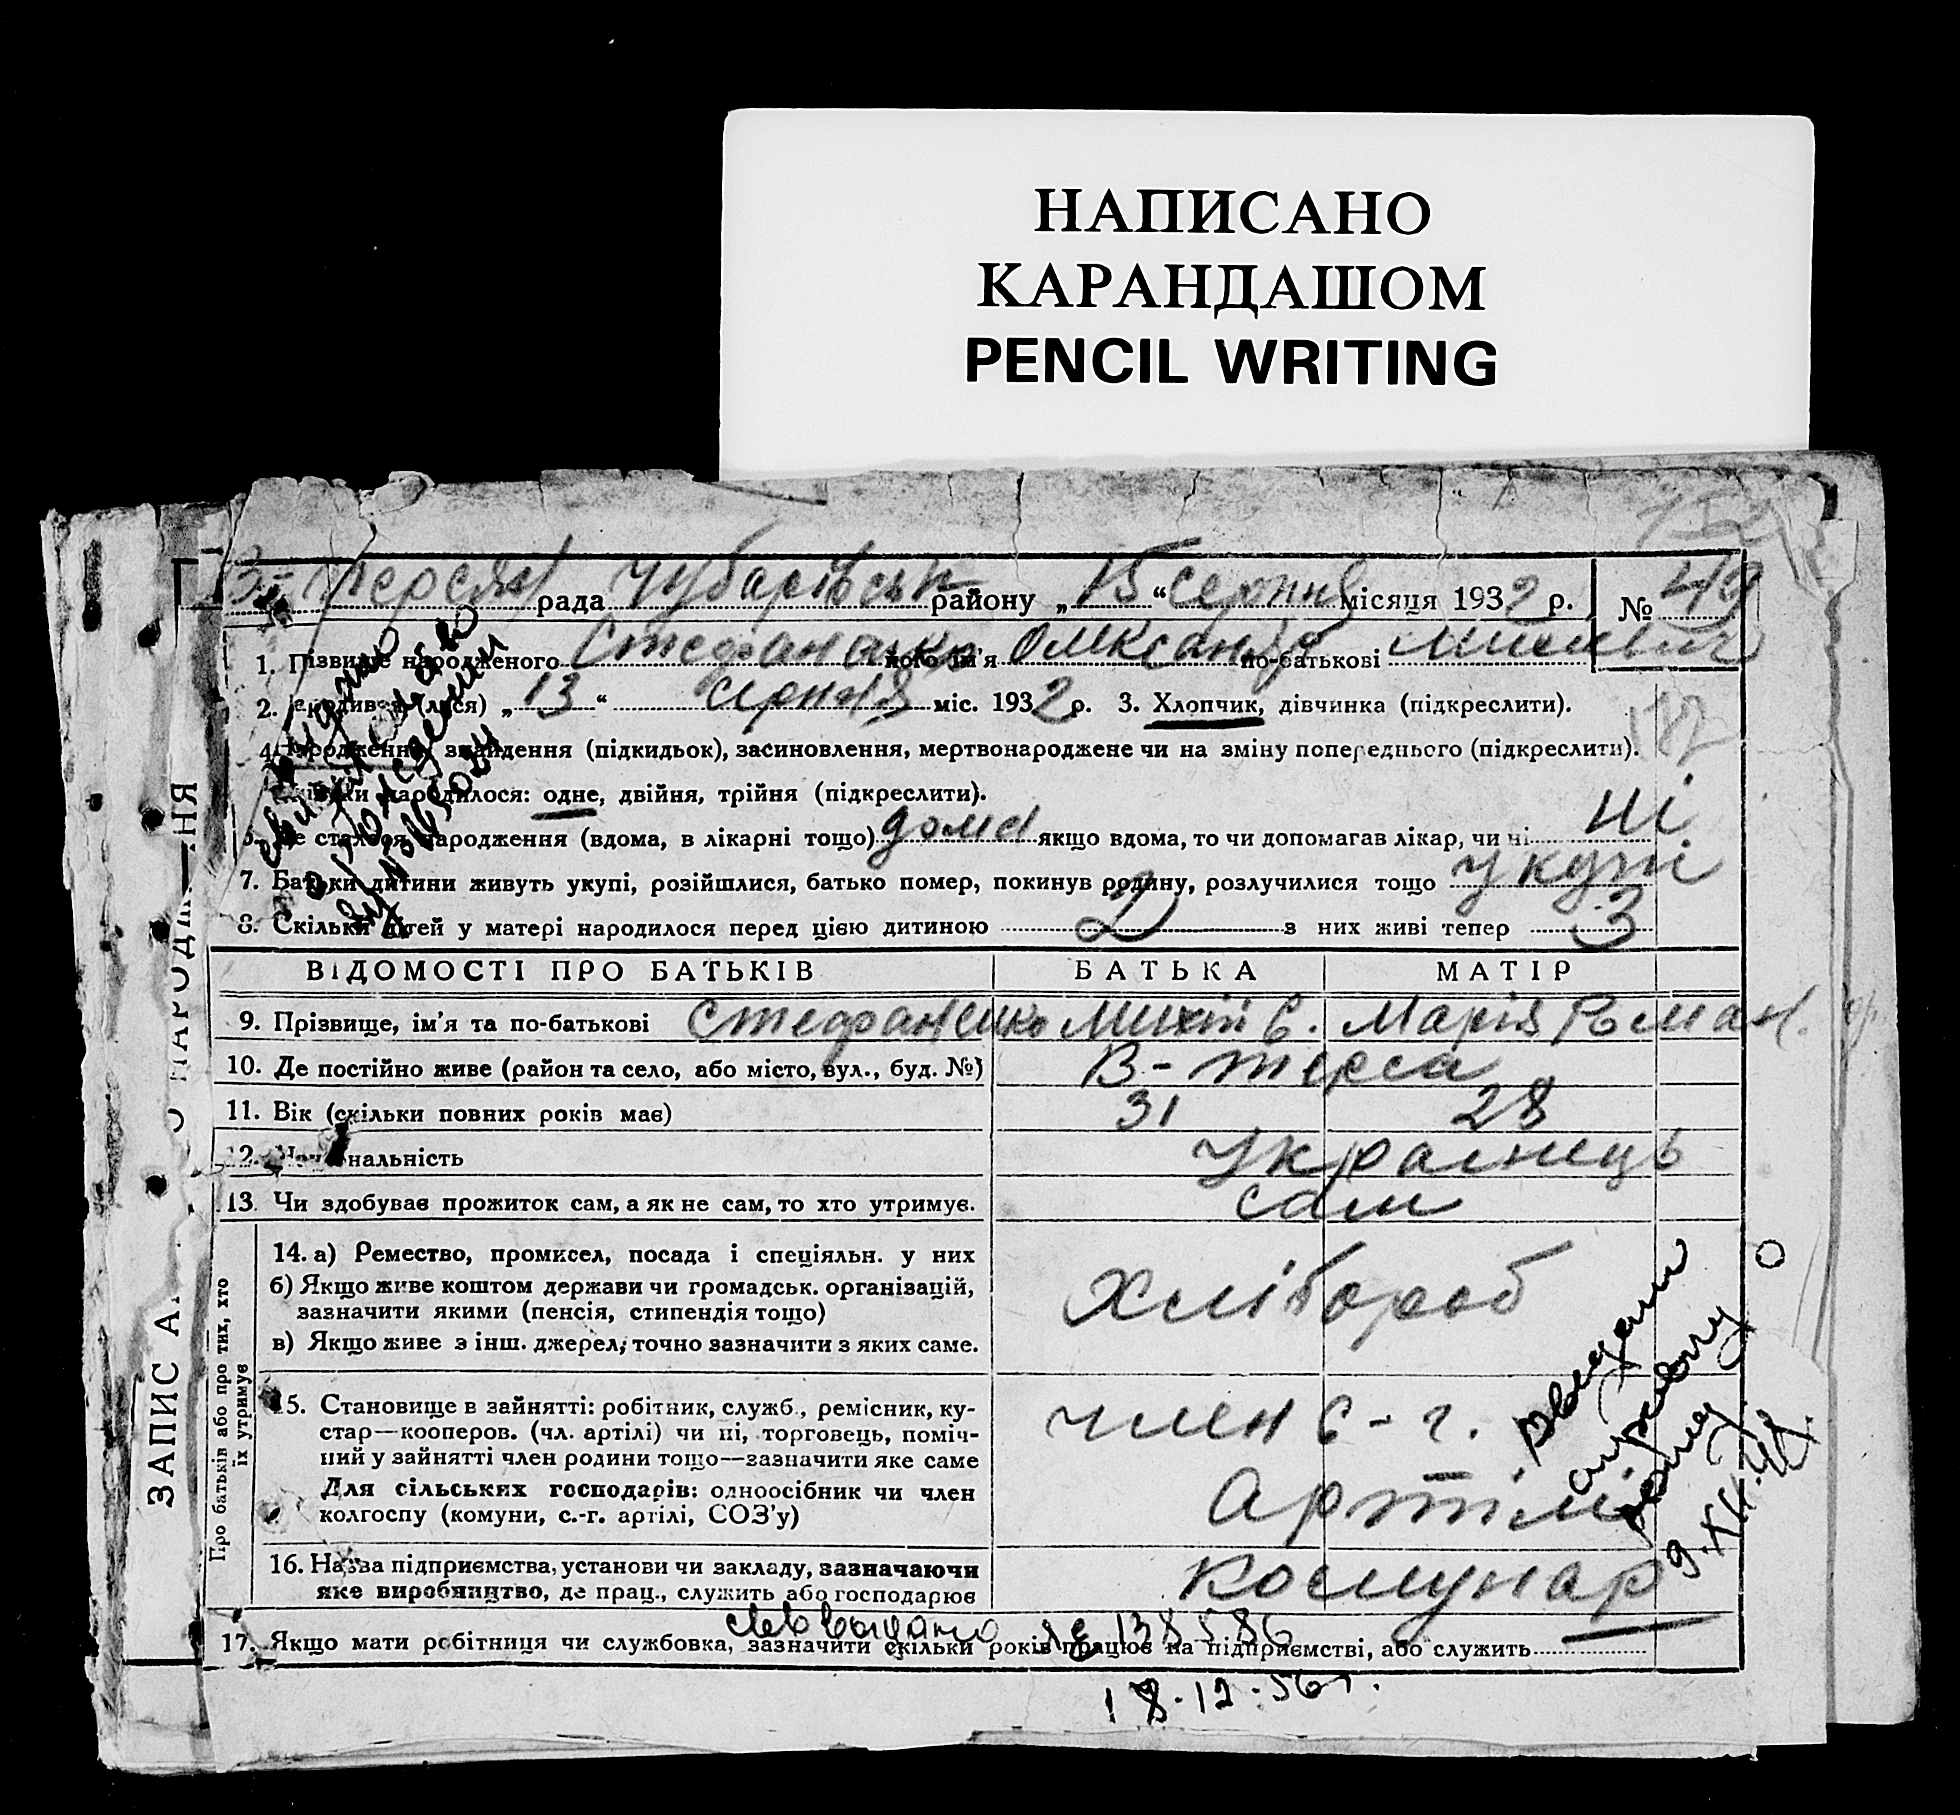 НАПИСАНО
КАРАНДАШОМ
PENCIL WRITING
рада Чубарівськ району „15“ серпня місяця 1932 р. № 49
1. Прізвище народженого Стефаненко його ім'я Олександр по-батькові
2. Народився (лася) „13“ серпня міс. 1932 р. 3. Хлопчик, дівчинка (підкреслити).
4. Народження, знайдення (підкидьок), засиновлення, мертвонароджене чи на зміну попереднього (підкреслити).
народилося: одне, двійня, трійня (підкреслити).
6. Де сталося народження (вдома, в лікарні тощо) дома якщо вдома, то чи допомагав лікар, чи ні ні
7. Батьки дитини живуть укупі, розійшлися, батько помер, покинув родину, розлучилися тощо укупі
8. Скільки дітей у матері народилося перед цією дитиною 2 з них живі тепер 3
ВІДОМОСТІ ПРО БАТЬКІВ БАТЬКА МАТІР
9. Прізвище, ім'я та по-батькові Стефаненко Михій Є. Марія Роман.
10. Де постійно живе (район та село, або місто, вул., буд. №) В-терса
11. Вік (скільки повних років має) 31 28
12. Національність Українець
13. Чи здобуває прожиток сам, а як не сам, то хто утримує. сам
14. а) Ремество, промисел, посада і спеціяльн. у них
б) Якщо живе коштом держави чи громадськ. організацій,
зазначити якими (пенсія, стипендія тощо)
в) Якщо живе з інш. джерел, точно зазначити з яких саме.
Хлібороб
15. Становище в зайнятті: робітник, служб., ремісник, ку-
стар—кооперов. (чл. артілі) чи ні, торговець, поміч-
ний у зайнятті член родини тощо—зазначити яке саме
Для сільських господарів: одноосібник чи член
колгоспу (комуни, с.-г. артілі, СОЗ'у)
член с-г.
Артілі
16. Назва підприємства, установи чи закладу, зазначаючи
яке виробництво, де прац., служить або господарює
Комунар
17. Якщо мати робітниця чи службовка, зазначити скільки років працює на підприємстві, або служить
выдано 138586
18.12.56 г.
Про батьків або про тих, хто
їх утримує
ЗАПИС
9.XII.